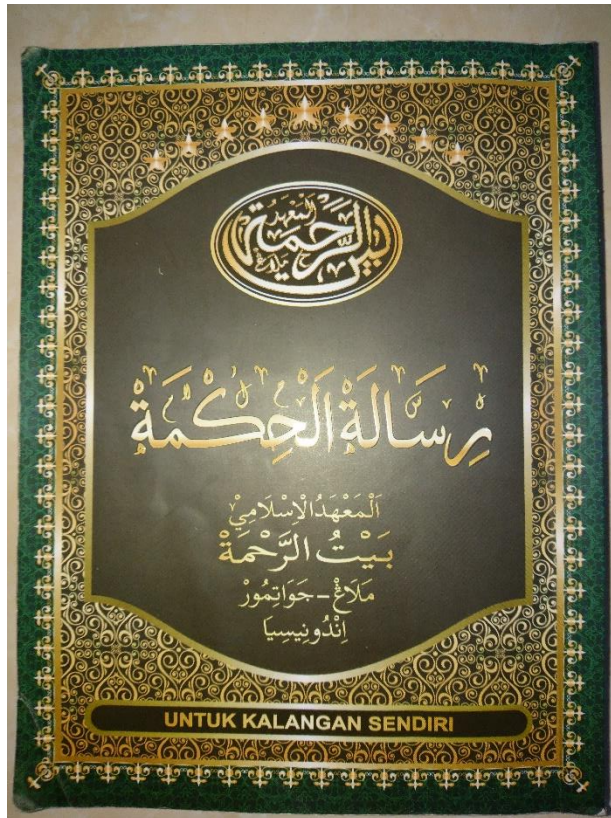 المعهد
بيت الرحمة
ملاغ
رِسَالَةُ الْحِكْمَةْ
اَلْمَعْهَدُ الْإِسْلَامِيْ
بَيْتُ الرَّحْمَةْ
مَلَاغْ - جَوَاتِمُورْ
اِنْدُونِيْسِيَا
UNTUK KALANGAN SENDIRI